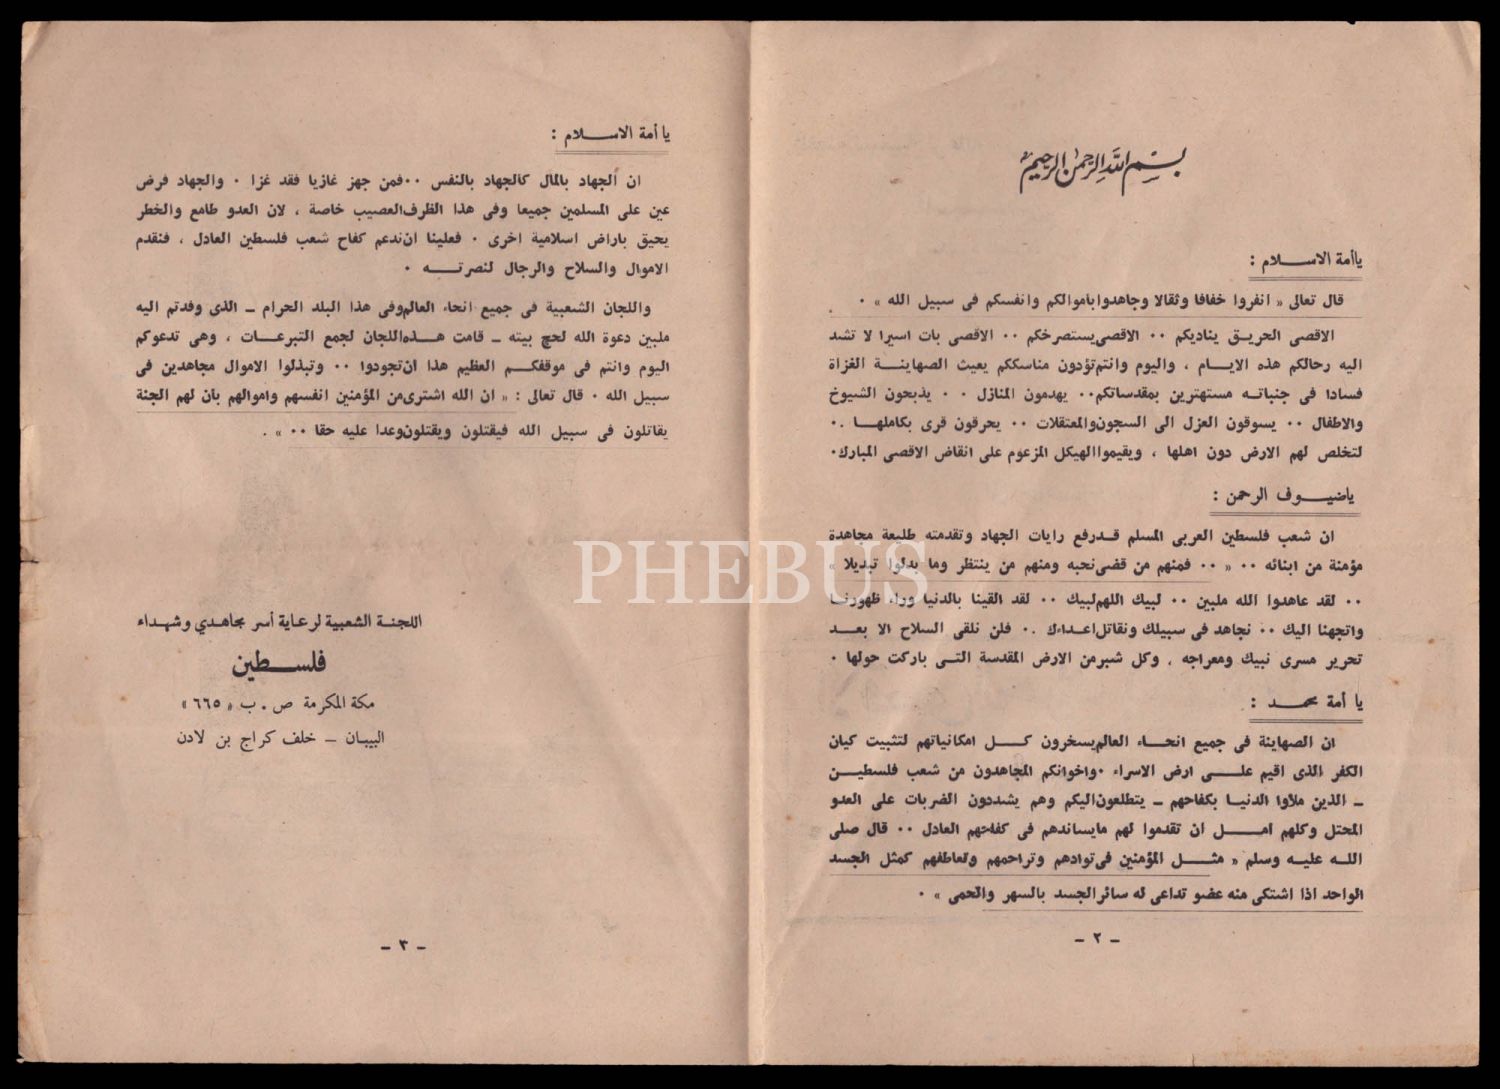 بسم الله الرحمن الرحيم
ياأمة الاسلام :
قال تعالى « انفروا خفافا وثقالا وجاهدوا باموالكم وانفسكم فى سبيل الله » ٠
الاقصى الحريق يناديكم ٠٠ الاقصى يستصرخكم ٠٠ الاقصى بات اسيرا لا تشد
اليه رحالكم هذه الايام ، واليوم وانتم تؤدون مناسككم يعيث الصهاينة الغزاة
فسادا فى جنباته مستهترين بمقدساتكم ٠٠ يهدمون المنازل ٠٠ يذبحون الشيوخ
والاطفال ٠٠ يسوقون العزل الى السجون والمعتقلات ٠٠ يحرقون قرى بكاملها ٠٠
لتخلص لهم الارض دون اهلها ، ويقيموا الهيكل المزعوم على انقاض الاقصى المبارك ٠
ياضيوف الرحمن :
ان شعب فلسطين العربى المسلم قد رفع رايات الجهاد وتقدمته طليعة مجاهدة
مؤمنة من ابنائه ٠٠ « ٠٠ فمنهم من قضى نحبه ومنهم من ينتظر وما بدلوا تبديلا »
٠٠ لقد عاهدوا الله ملبين ٠٠ لبيك اللهم لبيك ٠٠ لقد القينا بالدنيا وراء ظهورنا
واتجهنا اليك ٠٠ نجاهد فى سبيلك ونقاتل اعداءك ٠٠ فلن نلقى السلاح الا بعد
تحرير مسرى نبيك ومعراجه ، وكل شبر من الارض المقدسة التى باركت حولها ٠
يا أمة محمد :
ان الصهاينة فى جميع انحاء العالم يسخرون كل امكانياتهم لتثبيت كيان
الكفر الذى اقيم على ارض الاسراء ٠ واخوانكم المجاهدون من شعب فلسطين
ـ الذين ملأوا الدنيا بكفاحهم ـ يتطلعون اليكم وهم يشددون الضربات على العدو
المحتل وكلهم امل ان تقدموا لهم مايساندهم فى كفاحهم العادل ٠٠ قال صلى
الله عليه وسلم « مثل المؤمنين فى توادهم وتراحمهم وتعاطفهم كمثل الجسد
الواحد اذا اشتكى منه عضو تداعى له سائر الجسد بالسهر والحمى » ٠
ـ ٢ ـ
يا أمة الاسلام :
ان الجهاد بالمال كالجهاد بالنفس ٠٠ فمن جهز غازيا فقد غزا ٠ والجهاد فرض
عين على المسلمين جميعا وفى هذا الظرف العصيب خاصة ، لان العدو طامع والخطر
يحيق باراض اسلامية اخرى ٠ فعلينا ان ندعم كفاح شعب فلسطين العادل ، فنقدم
الاموال والسلاح والرجال لنصرته ٠
واللجان الشعبية فى جميع انحاء العالم وفى هذا البلد الحرام ـ الذى وفدتم اليه
ملبين دعوة الله لحج بيته ـ قامت هذه اللجان لجمع التبرعات ، وهى تدعوكم
اليوم وانتم فى موقفكم العظيم هذا ان تجودوا ٠٠ وتبذلوا الاموال مجاهدين فى
سبيل الله ٠ قال تعالى : « ان الله اشترى من المؤمنين انفسهم واموالهم بان لهم الجنة
يقاتلون فى سبيل الله فيقتلون ويقتلون وعدا عليه حقا ٠٠ » ٠
اللجنة الشعبية لرعاية أسر مجاهدي وشهداء
فلسطين
مكة المكرمة ص . ب « ٦٦٥ »
البيبان ـ خلف كراج بن لادن
ـ ٣ ـ
PHEBUS